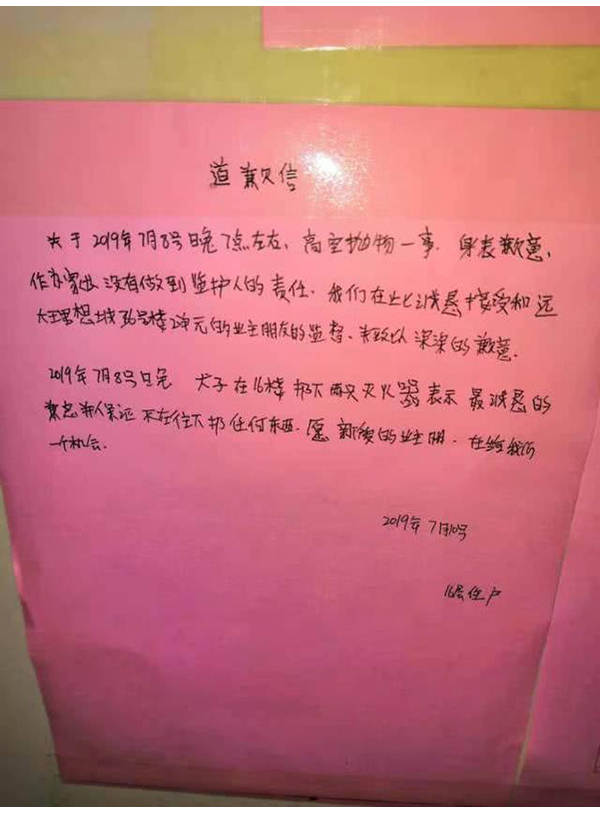 道歉信
关于2019年7月8号日晚7点左右、高空抛物一事. 身表歉意,
作为家长没有做到监护人的责任. 我们在此诚恳接受和远
大理想城36号楼2单元的业主朋友的监督、来致以深深的歉意.
2019年7月8号日晚 犬子在16楼扔下两只灭火器表示最诚恳的
兼忠并保证不在往下扔任何东西. 愿 的业主朋. 在给我们
一个机会.
2019年7月10号
16层住户